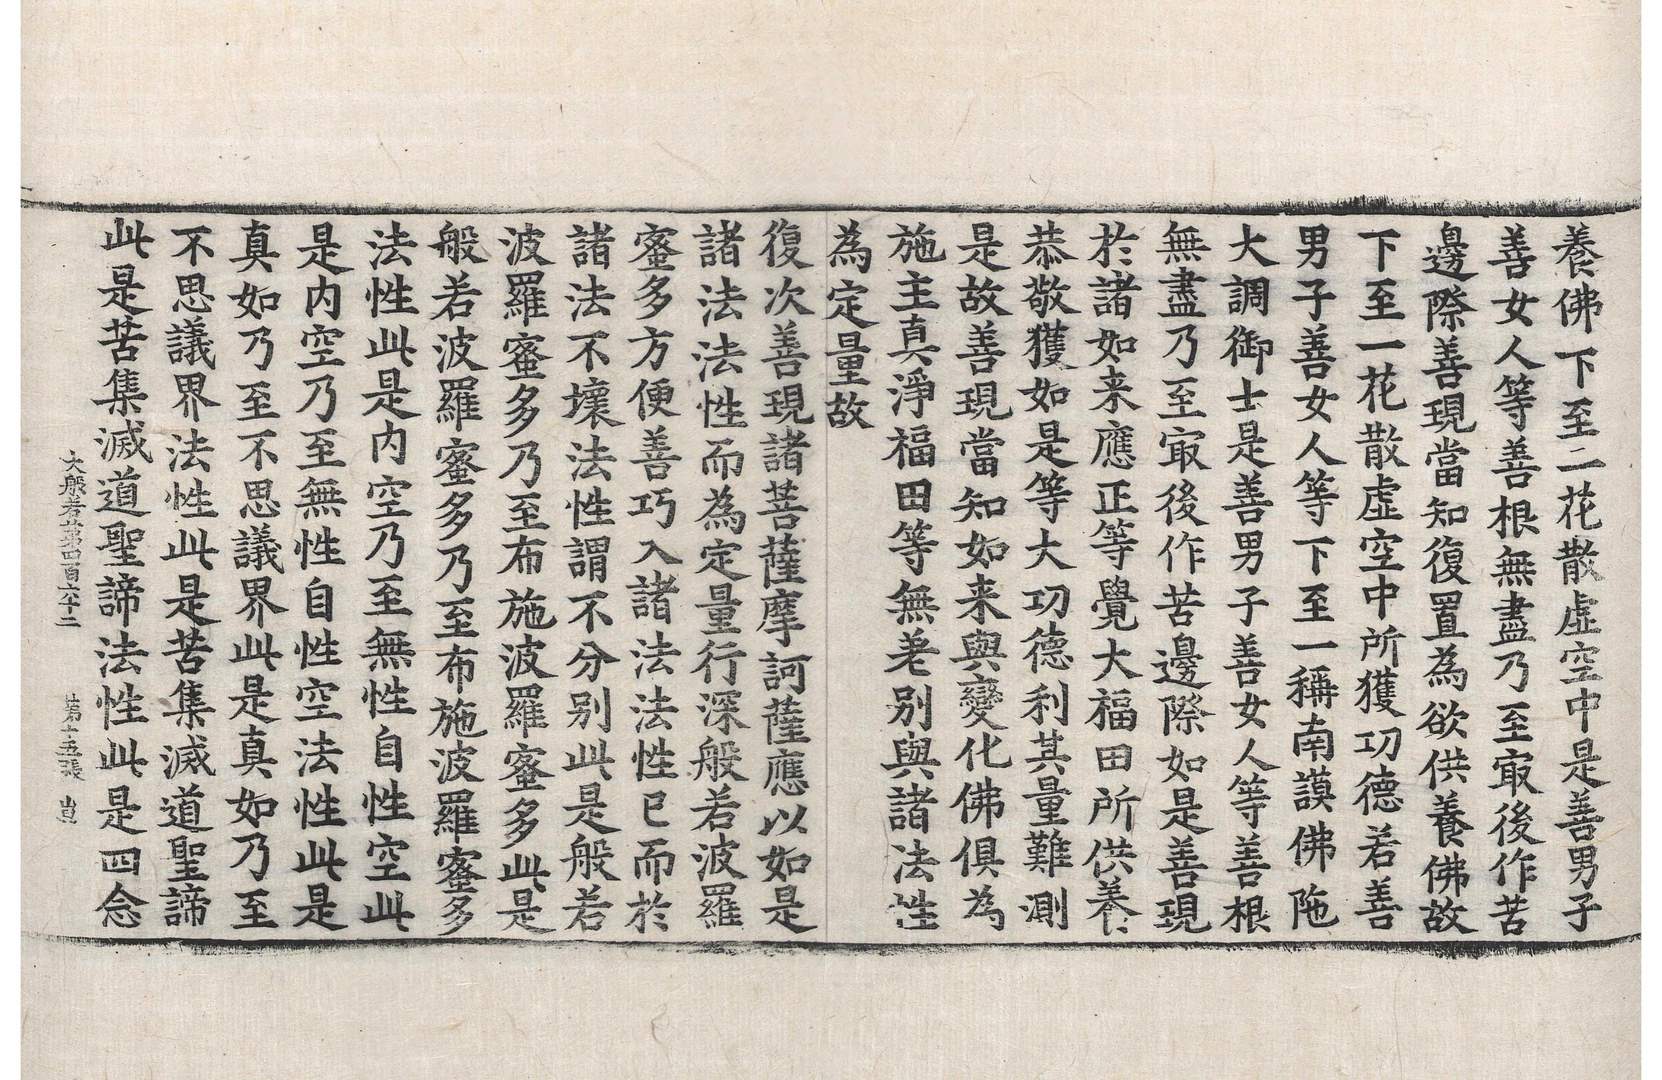 養佛下至一花散虛空中是善男子
善女人等善根無盡乃至㝡後作苦
邊際善現當知復置為欲供養佛故
下至一花散虛空中所獲功德若善
男子善女人等下至一稱南謨佛陁
大調御士是善男子善女人等善根
無盡乃至㝡後作苦邊際如是善現
於諸如来應正等覺大福田所供養
恭敬獲如是等大功德利其量難測
是故善現當知如来與變化佛俱為
施主真淨福田等無差別與諸法性
為定量故
復次善現諸菩薩摩訶薩應以如是
諸法法性而為定量行深般若波羅
蜜多方便善巧入諸法法性已而於
諸法不壞法性謂不分別此是般若
波羅蜜多乃至布施波羅蜜多此是
般若波羅蜜多乃至布施波羅蜜多
法性此是內空乃至無性自性空此
是內空乃至無性自性空法性此是
真如乃至不思議界此是真如乃至
不思議界法性此是苦集滅道聖諦
此是苦集滅道聖諦法性此是四念
大般若第四百六十二 第十五張 豈